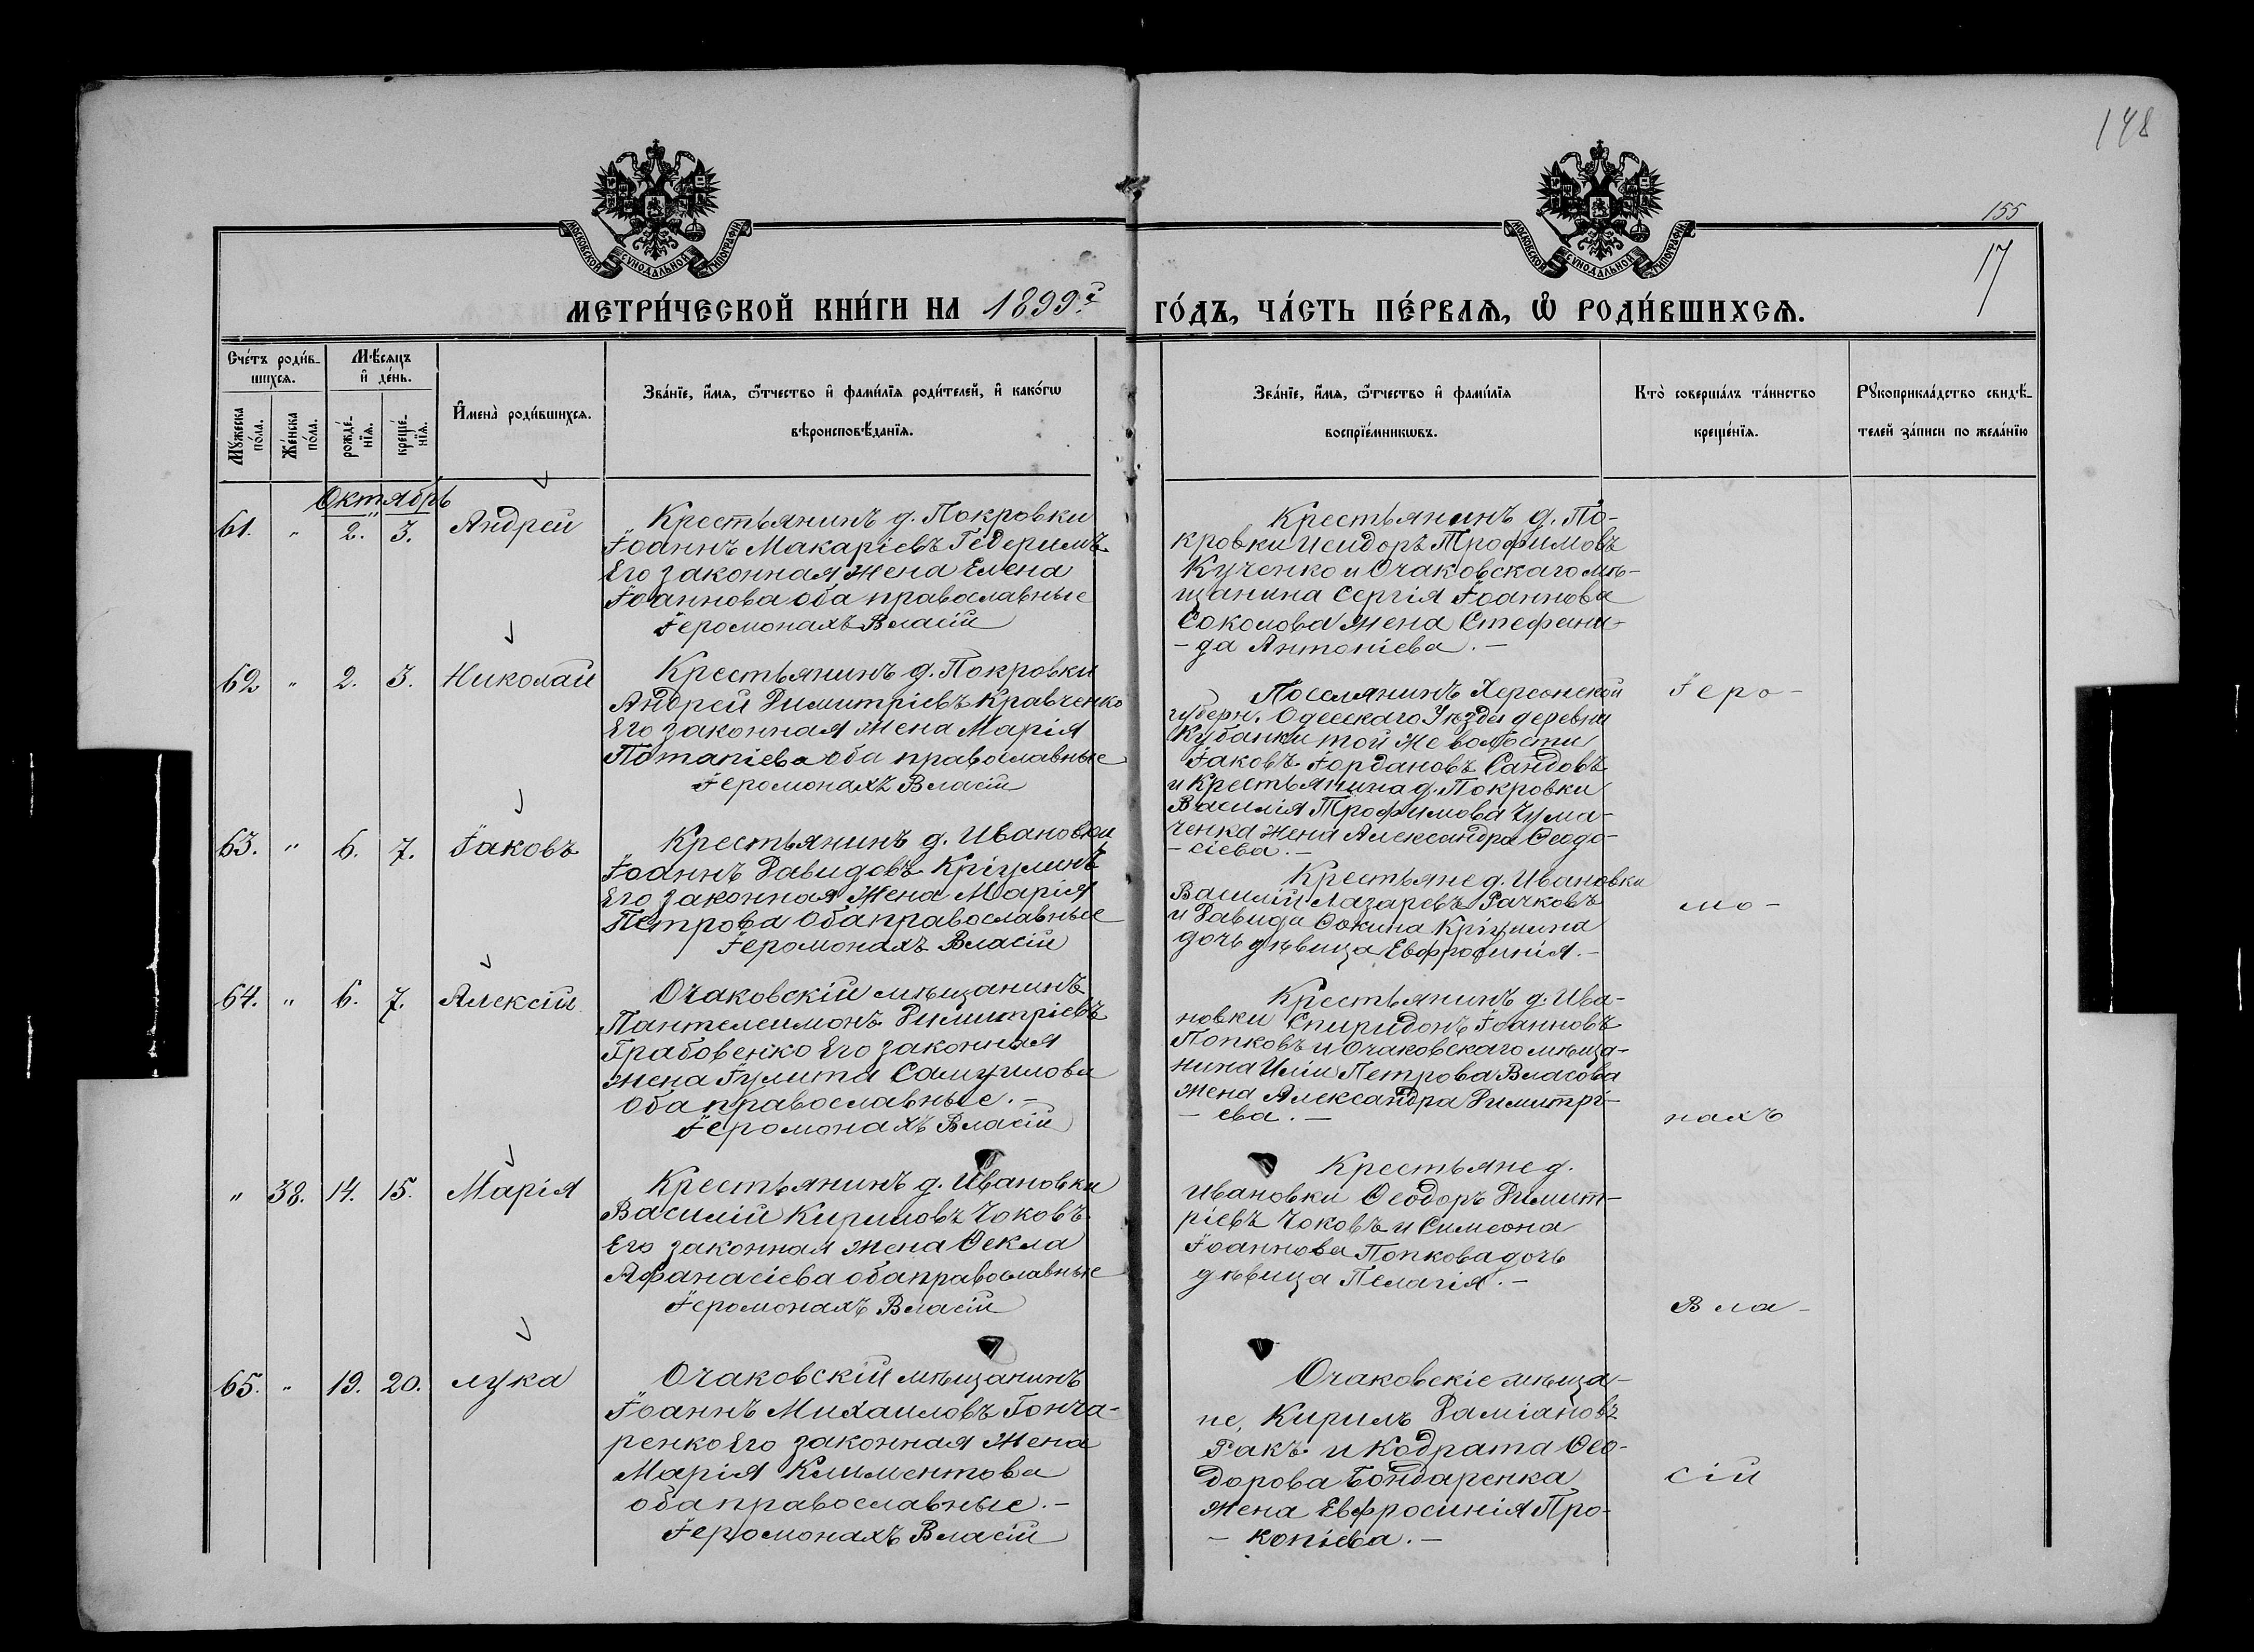 148
155
17
МОСКОВСКОЙ СѴНОДАЛЬНОЙ ТИПОГРАФІИ
МОСКОВСКОЙ СѴНОДАЛЬНОЙ ТИПОГРАФІИ
МЕТРИ́ЧЕСКОЙ КНИ́ГИ НА 1899й
ГО́ДЪ, ЧА́СТЬ ПЕ́РВАѦ, Ѡ҆ РОДИ́ВШИХСѦ.
Сче́тъ роди́в-
шихсѧ.
Мꙋ́жеска
по́ла.
Же́нска
по́ла.
Мѣ́сѧцъ
и҆ де́нь.
рожде́-
нїѧ.
креще́-
нїѧ.
И҆мена̀ роди́вшихсѧ.
Зва́нїе, и҆́мѧ, ѻ҆́тчество и҆ фами́лїѧ роди́телей, и҆ како́гѡ
вѣроисповѣ́данїѧ.
Зва́нїе, и҆́мѧ, ѻ҆́тчество и҆ фами́лїѧ
воспрїе́мникѡвъ.
Кто̀ соверша́лъ та́инство
креще́нїѧ.
Рꙋкоприкла́дство свидѣ́-
телей за́писи по жела́нїю
Октябрь
61. " 2. 3. Андрей
Крестьянинъ д. Покровки
Іоаннъ Макаріевъ Гедеримъ
Его законная жена Елена
Іоаннова оба православные
Іеромонахъ Власій
Крестьянинъ д. По-
кровки Исидоръ Трофимовъ
Кученко и Очаковскаго мѣ-
щанина Сергія Іоаннова
Соколова жена Стефани-
-да Антоніева.-
62 " 2. 3. Николай
Крестьянинъ д. Покровки
Андрей Димитріевъ Кравченко
Его законная жена Марія
Потапіева оба православные
Іеромонахъ Власій
Поселянинъ Херсонской
губерн. Одесскаго Уѣзда деревни
Кубанки той же волости
Іаковъ Іордановъ Сандовъ
и Крестьянина д. Покровки
Василія Трофимова Чума-
ченка жена Александра Ѳеодо-
-сіева.-
63. " 6. 7. Іаковъ
Крестьянинъ д. Ивановки
Іоаннъ Давидовъ Кріулинъ
Его законная жена Марія
Петрова Оба православные
Іеромонахъ Власій
Крестьяне д. Ивановки
Василій Лазаревъ Рачковъ
и Давида Ѳокина Кріулина
дочь дѣвица Евфросинія.-
64. " 6. 7. Алексій
Очаковскій мѣщанинъ
Пантелеимонъ Димитріевъ
Грабовенко Его законная
жена Іулита Самуилова
Оба православные.-
Іеромонахъ Власій
Крестьянинъ д. Ива-
новки Спиридонъ Іоанновъ
Попковъ и Очаковскаго мѣща-
нина Иліи Петрова Власова
жена Александра Димитрі-
- ева.-
" 38. 14. 15. Марія
Крестьянинъ д. Ивановки
Василій Кириловъ Чоковъ
Его законная жена Ѳекла
Афанасіева оба православные
Іеромонахъ Власій
Крестьяне д.
Ивановки Ѳеодоръ Димит-
ріевъ Чоковъ и Симеона
Іоаннова Попкова дочь
дѣвица Пелагія.-
65. " 19. 20. Лука
Очаковскій мѣщанинъ
Іоаннъ Михаиловъ Гонча-
ренко Его законная жена
Марія Климентова
оба православные.-
Іеромонахъ Власій
Очаковскіе мѣща-
не, Кирилъ Даміановъ
Ракъ и Кодрата Ѳео-
дорова Бондаренка
жена Евфросинія Про-
- копіева.-
Іеро-
мо-
нахъ
Вла-
сій